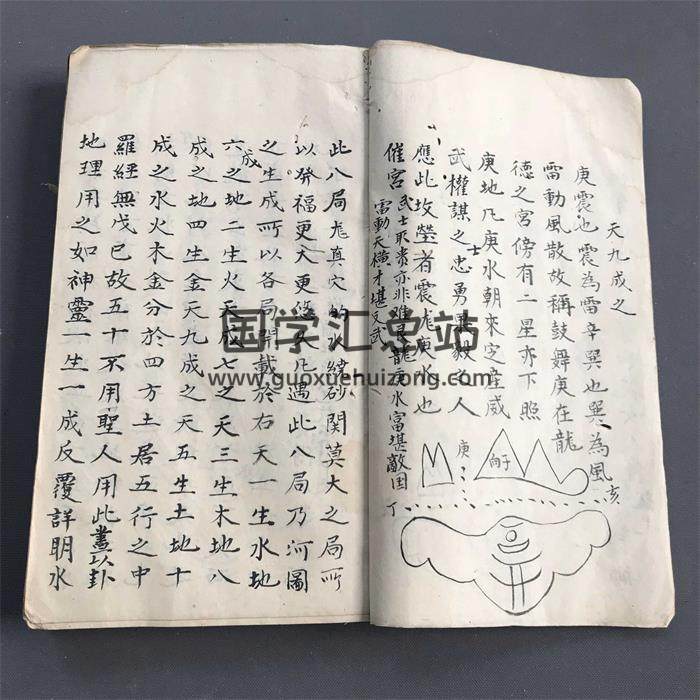 天九成之
庚震也震為雷辛巽也巽為風
雷動風散故稱鼓舞庚在龍
德之宮傍有二星亦下照
庚地凡庚水朝來定產威
武權謀之忠勇果毅之人
士
應此坟塋者震龙庚水也
催宮 武士取贵亦非难 龍庚水富堪敵国
雷動天横才堪文武
庚
向子
亥
丁
此八局龙真穴的水繞砂関莫大之局所
以發福更大更悠久凡遇此八局乃河圖
之生成所以各局開載於右天一生水地
六成之地二生火天成七之天三生木地八
成之地四生金天九成之天五生土地十
成之水火木金分於四方土居五行之中
羅經無戊己故五十不用聖人用此畫以卦
地理用之如神靈一生一成反覆詳明水
国学汇总站
www.guoxuehuizong.com